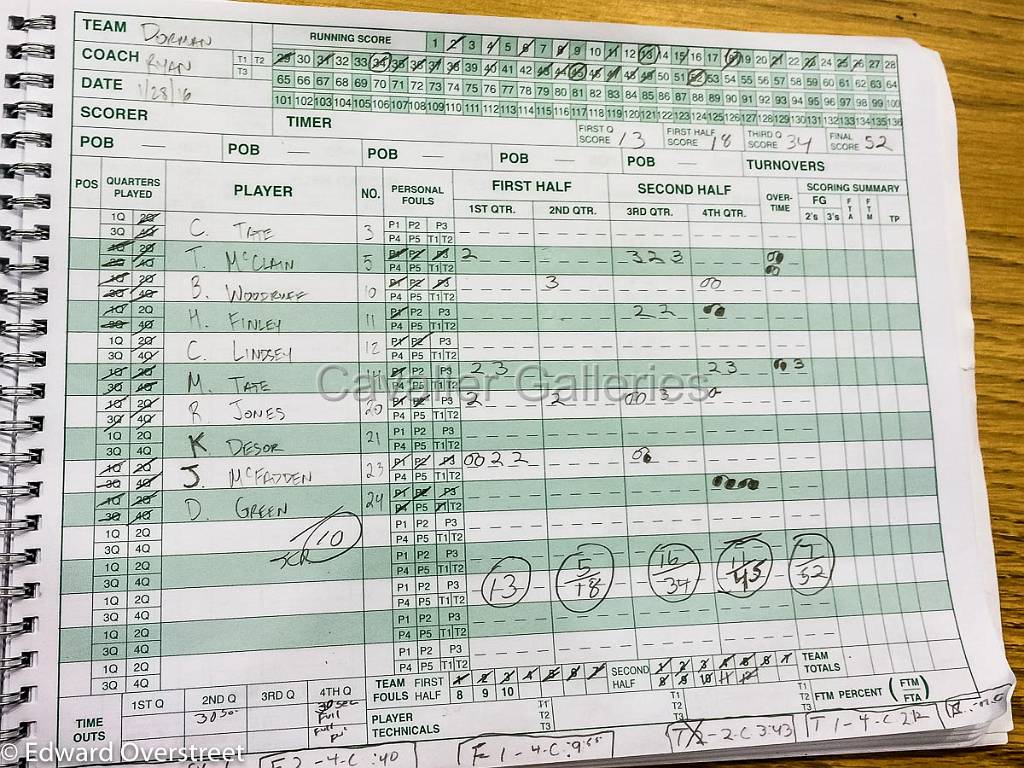 TEAM Dorman
RUNNING SCORE 1 2 3 4 5 6 7 8 9 10 11 12 13 14 15 16 17 18 19 20 21 22 23 24 25 26 27 28
COACH RYAN T1 T2 T3
29 30 31 32 33 34 35 36 37 38 39 40 41 42 43 44 45 46 47 48 49 50 51 52 53 54 55 56 57 58 59 60 61 62 63 64
DATE 1/28/16
65 66 67 68 69 70 71 72 73 74 75 76 77 78 79 80 81 82 83 84 85 86 87 88 89 90 91 92 93 94 95 96 97 98 99 100
101 102 103 104 105 106 107 108 109 110 111 112 113 114 115 116 117 118 119 120 121 122 123 124 125 126 127 128 129 130 131 132 133 134 135 136
SCORER TIMER FIRST Q SCORE 13 FIRST HALF SCORE 18 THIRD Q SCORE 34 FINAL SCORE 52
POB — POB — POB — POB — POB — TURNOVERS
POS QUARTERS PLAYED PLAYER NO. PERSONAL FOULS FIRST HALF SECOND HALF OVER-TIME SCORING SUMMARY
1ST QTR. 2ND QTR. 3RD QTR. 4TH QTR. FG 2's 3's FTA FTM TP
1Q 2Q 3Q 4Q C. TATE 3 P1 P2 P3 P4 P5 T1 T2
1Q 2Q 3Q 4Q T. McCLAIN 5 P1 P2 P3 P4 P5 T1 T2 2 3 2 3
1Q 2Q 3Q 4Q B. WOODRUFF 10 P1 P2 P3 P4 P5 T1 T2 3 00
1Q 2Q 3Q 4Q H. FINLEY 11 P1 P2 P3 P4 P5 T1 T2 2 2
1Q 2Q 3Q 4Q C. LINDSEY 12 P1 P2 P3 P4 P5 T1 T2
1Q 2Q 3Q 4Q M. TATE 14 P1 P2 P3 P4 P5 T1 T2 2 3 2 3 3
1Q 2Q 3Q 4Q R JONES 20 P1 P2 P3 P4 P5 T1 T2 2 2 00 3 0
1Q 2Q 3Q 4Q K DESOR 21 P1 P2 P3 P4 P5 T1 T2
1Q 2Q 3Q 4Q J. McFADDEN 23 P1 P2 P3 P4 P5 T1 T2 00 2 2
1Q 2Q 3Q 4Q D. GREEN 24 P1 P2 P3 P4 P5 T1 T2
1Q 2Q 3Q 4Q P1 P2 P3 P4 P5 T1 T2
1Q 2Q 3Q 4Q P1 P2 P3 P4 P5 T1 T2 13 5 18 16 34 11 45 7 52
1Q 2Q 3Q 4Q P1 P2 P3 P4 P5 T1 T2
1Q 2Q 3Q 4Q P1 P2 P3 P4 P5 T1 T2
1Q 2Q 3Q 4Q P1 P2 P3 P4 P5 T1 T2
TEAM FOULS FIRST HALF 1 2 3 4 5 6 7 8 9 10 SECOND HALF 1 2 3 4 5 6 7 8 9 10 11 12 TEAM TOTALS
TIME OUTS 1ST Q 2ND Q 30 sec 3RD Q 4TH Q 30 sec Full Full
PLAYER TECHNICALS T1 T2 T3 T1 T2 T3 T1 T2 T3 FTM PERCENT (FTM/FTA)
F 2-4-C :40 F 1-4-C :9:55 2-C 3:43 T 1-4-C 2:12
Cavalier Galleries
© Edward Overstreet